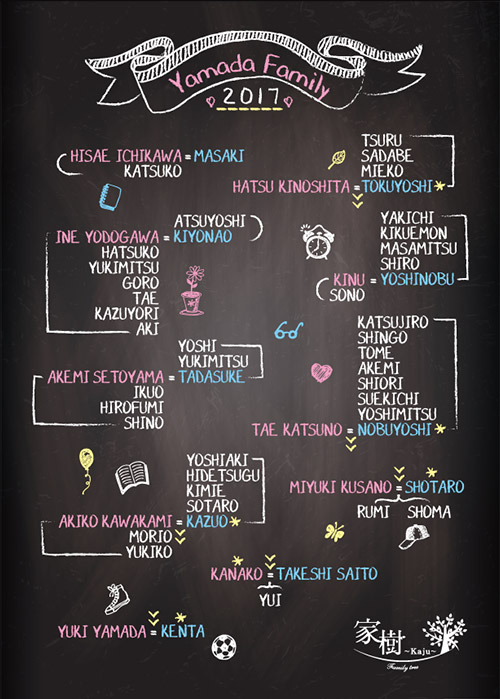 Yamada Family
2017
HISAE ICHIKAWA = MASAKI
KATSUKO
TSURU
SADABE
MIEKO
HATSU KINOSHITA = TOKUYOSHI *
ATSUYOSHI
INE YODOGAWA = KIYONAO
HATSUKO
YUKIMITSU
GORO
TAE
KAZUYORI
AKI
YAKICHI
KIKUEMON
MASAMITSU
SHIRO
KINU = YOSHINOBU
SONO
YOSHI
YUKIMITSU
AKEMI SETOYAMA = TADASUKE
IKUO
HIROFUMI
SHINO
KATSUJIRO
SHINGO
TOME
AKEMI
SHIORI
SUEKICHI
YOSHIMITSU
TAE KATSUNO = NOBUYOSHI *
YOSHIAKI
HIDETSUGU
KIMIE
SOTARO
AKIKO KAWAKAMI = KAZUO *
MORIO
YUKIKO
MIYUKI KUSANO = SHOTARO
RUMI SHOMA
KANAKO = TAKESHI SAITO
YUI
YUKI YAMADA = KENTA
家樹
~Kaju~
Family tree